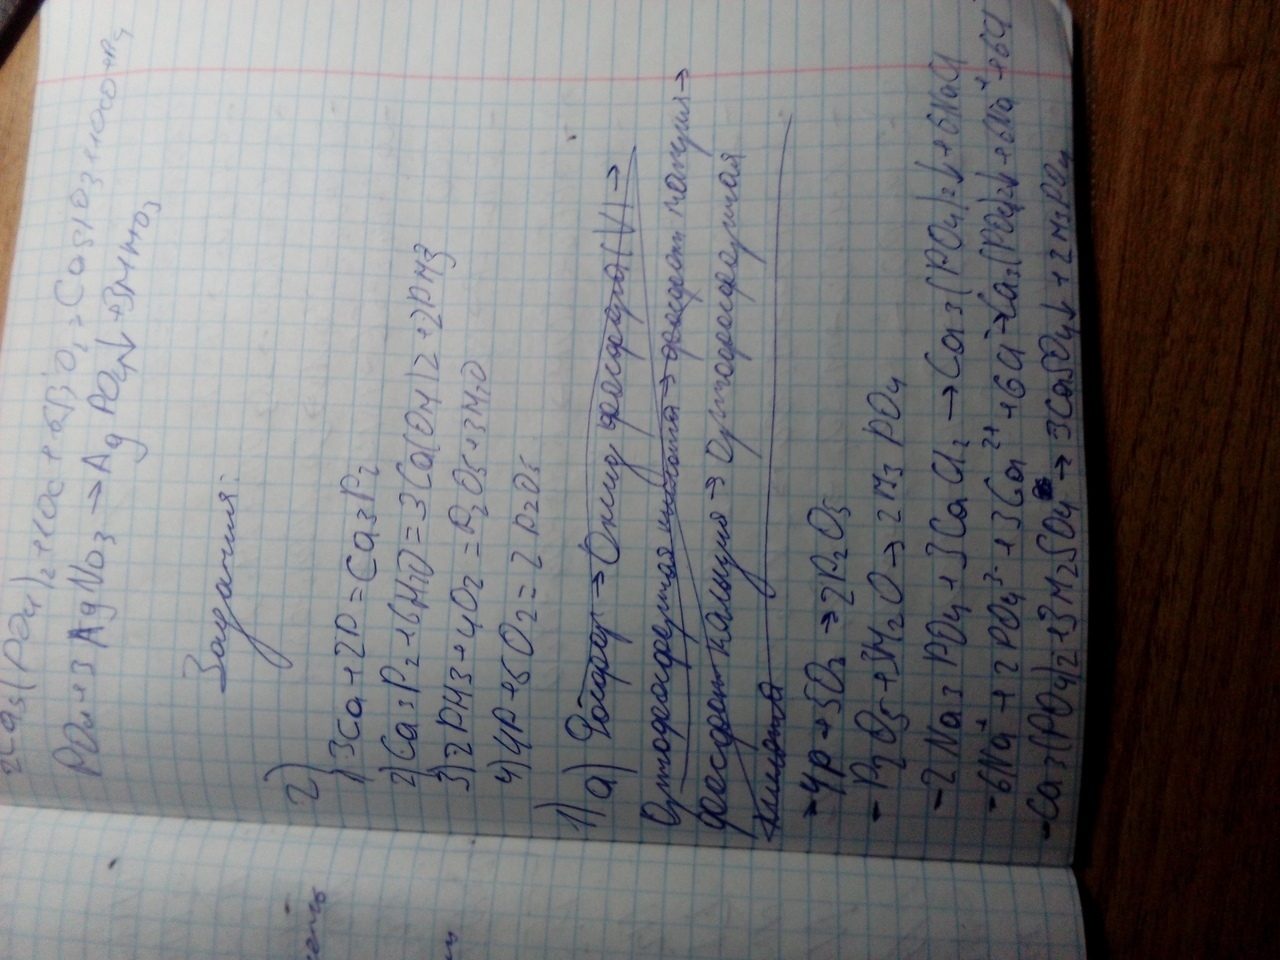 2Ca3(PO4)2+10C+6SiO2=CaSiO3+10CO+P4
PO4+3AgNO3→AgPO4↓+3HNO3
Задания:
2)
1) 3Ca+2P=Ca3P2
2) Ca3P2+6H2O=3Ca(OH)2+2PH3
3) 2PH3+4O2=P2O5+3H2O
4) 4P+5O2=2P2O5
1)
а) Фосфор→Оксид фосфора(V)→
Ортофосфорная кислота→фосфат натрия→
фосфат кальция→Ортофосфорная
кислота
-4P+5O2→2P2O5
-P2O5+3H2O→2H3PO4
-2Na3PO4+3CaCl2→Ca3(PO4)2↓+6NaCl
-6Na++2PO4 3-+3Ca2++6Cl-→Ca3(PO4)2↓+6Na++6Cl
-Ca3(PO4)2+3H2SO4→3CaSO4↓+2H3PO4